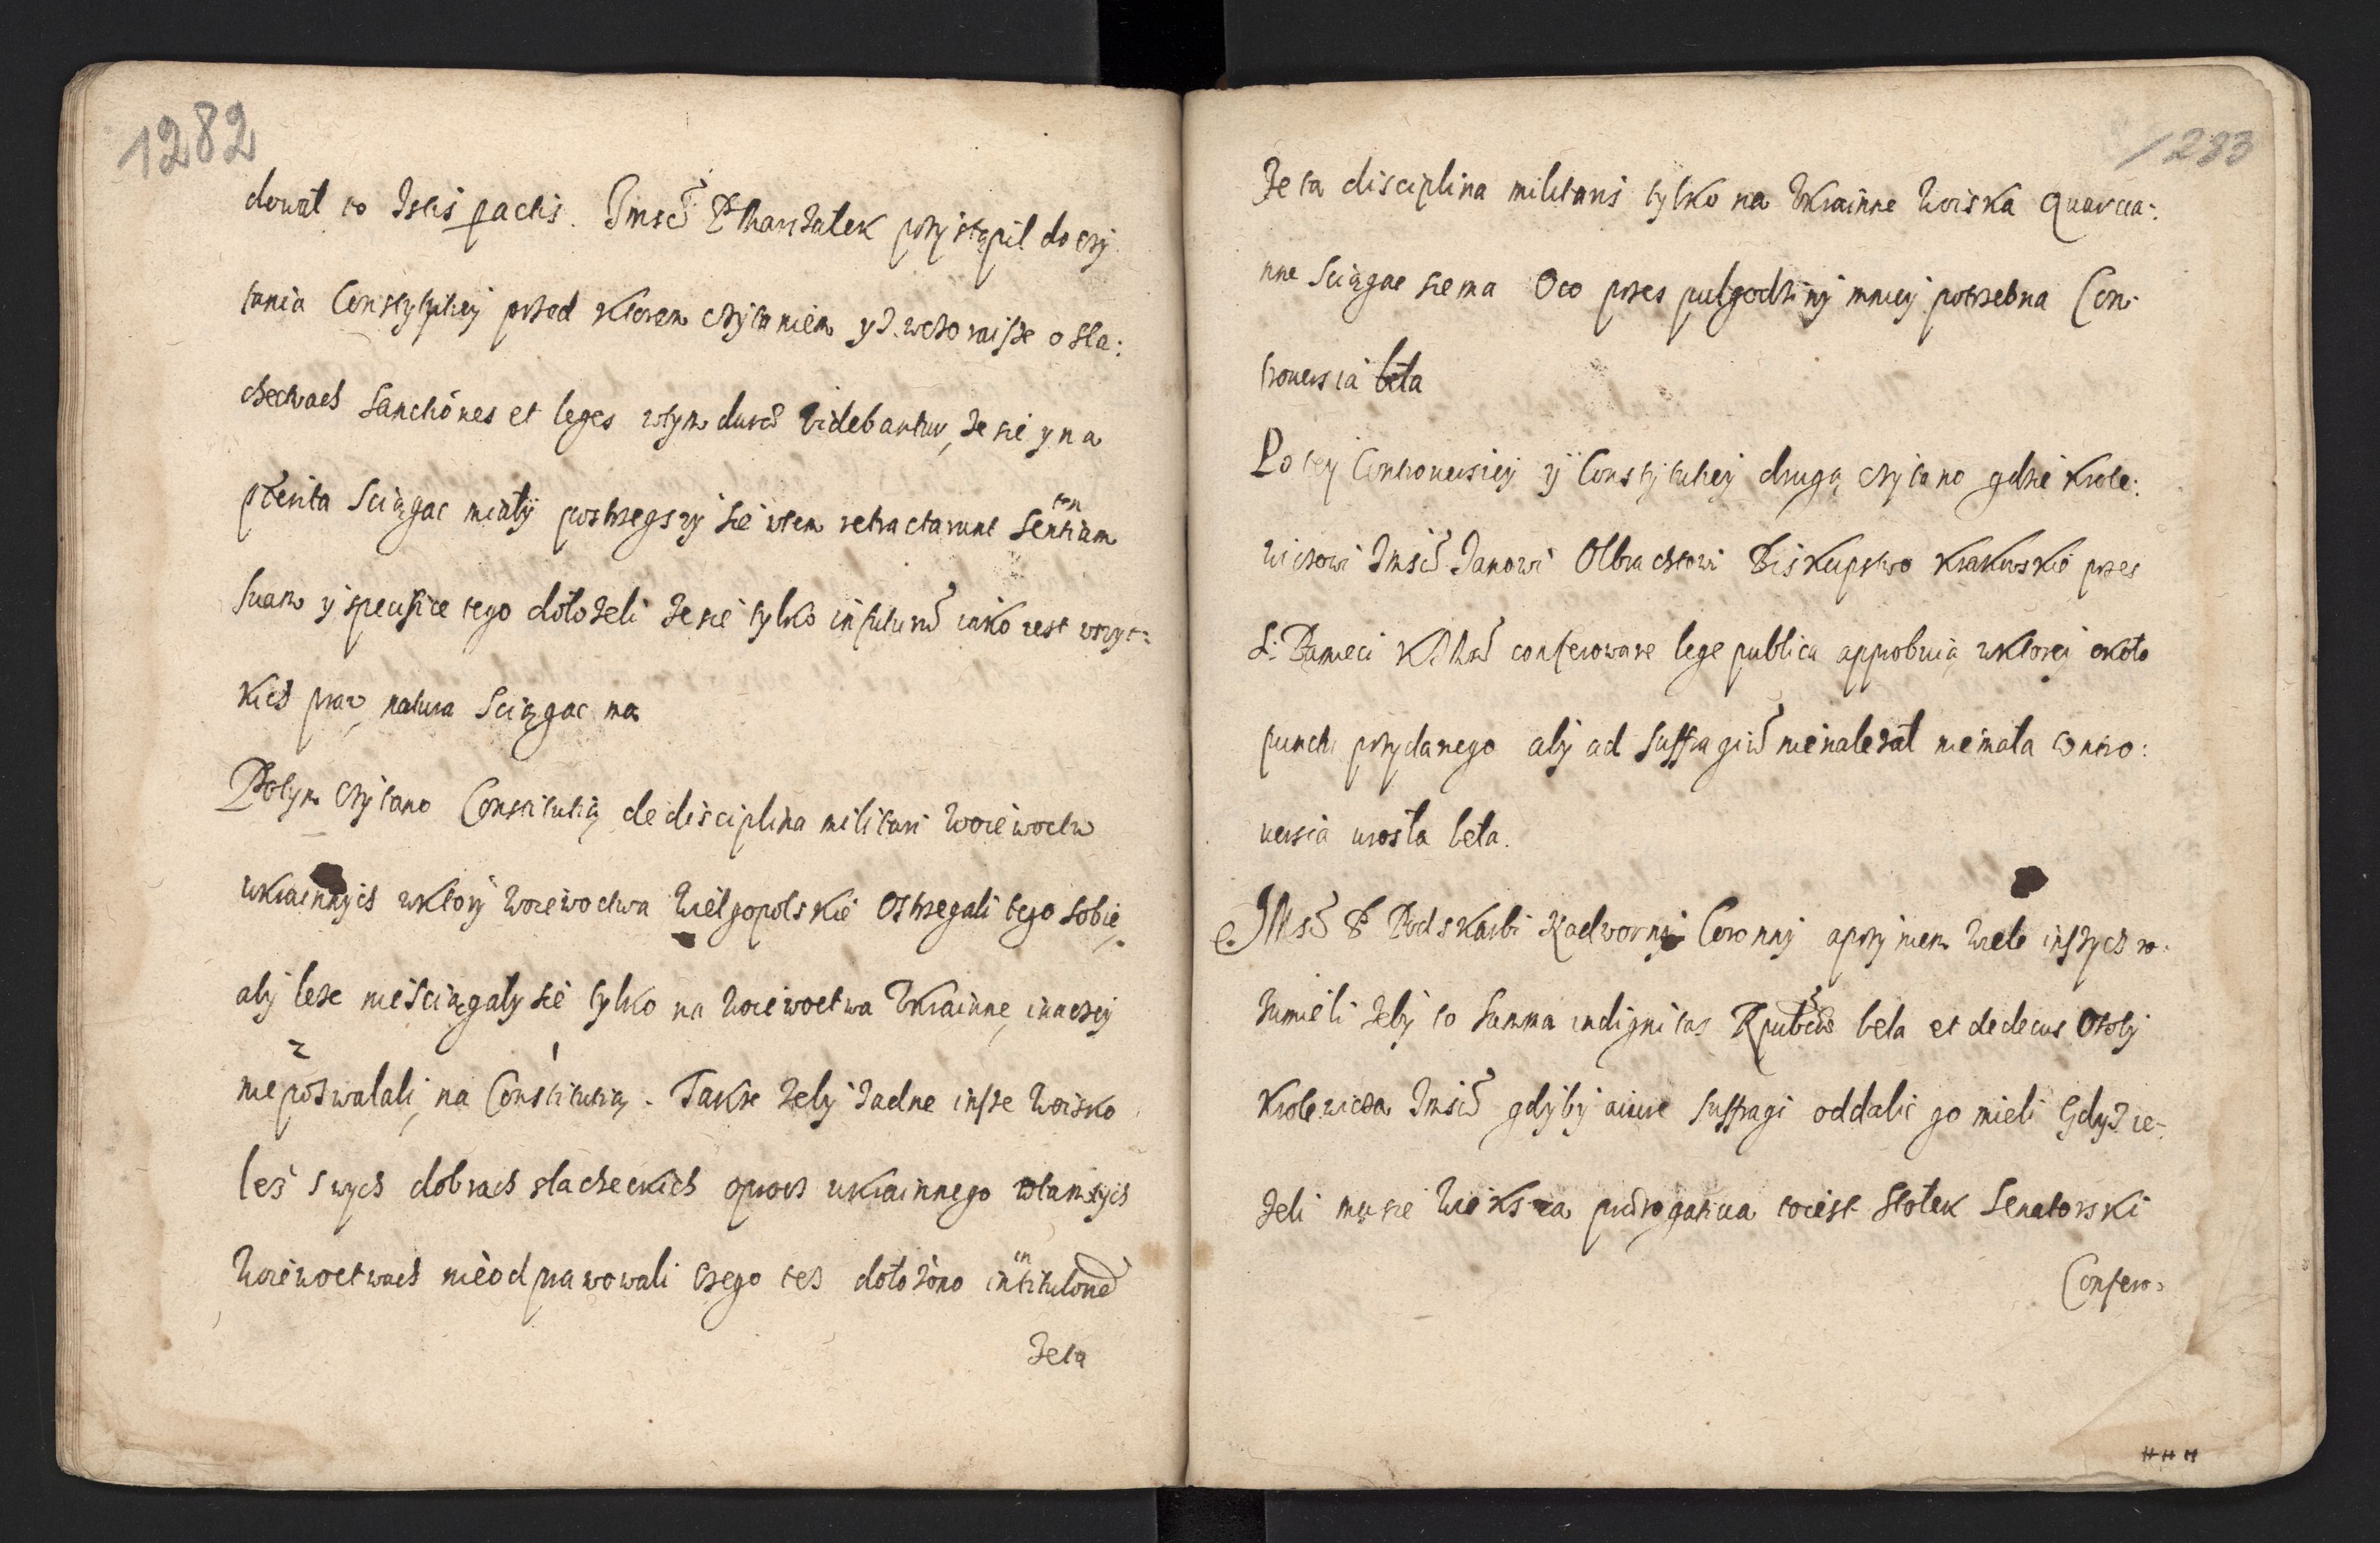 1282
dował to Istis pactis. Jmsć P Marszałek przystąpił do czy
tania Constytuciej przed ktorem czytaniem yż wczoraisze o sla:
checkach Sanctiones et leges wtym durae videbantur, że sie y na
pterita sciągac miały postrzegszy sie wtem retractarunt sententiam
suam y specifice tego dołożeli że sie tylko in futurum iako iest wszyt:
kich praw natura sciągac ma
Potym czytano Constitutią de disciplina militari Woiewoctw
ukrainnych wktory woiewoctwa Wielgopolskie ostrzegali tego sobie,
aby leże niesciągały sie tylko na woiewoctwa Ukrainne, inaczej
2 1
nie pozwalali, na Constitutią. Takze żeby żadne insze woisko
leż swych dobrach slacheckich oprocz ukrainnego w tamtych
woiewoctwach nieodprawowali czego tez dołożono in intitulone
Zeta
1283
Ze ta disciplina militaris tylko na Ukrainne woiska quarcia:
nne sciągac sie ma Oco przes pulgodziny mniej potrzebna Con:
trouersia beła
Po tey Controuersiej y Constytuciej drugą czytano gdzie Krole:
wiczowi Jmsci Janowi Olbrachtowi Biskupstwo Krakowskie przes
S: Pameci KJM conferowane lege publica approbuią wktorej około
punctu przydanego aby ad suffragium nienależał niemała contro:
uersia urosła beła.
JMsć P Podskarbi Nadworny Coronny a przy niem wiele inszych ro:
zumieli żeby to summa indignitas Rpublicae beła et dedecus Osoby
Krolewicza Jmsci gdyby a iure suffragi oddalic go mieli Gdyż ie:
żeli mu sie wieksza praerogatiua toiest stołek Senatorski
Confero: